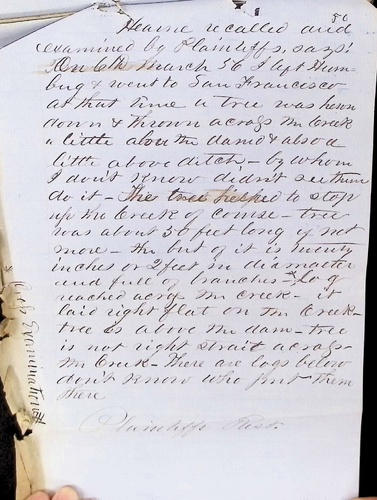 50
Hearne recalled and
examined by Plaintiffs, says:
On 6th March 56 I left Hum-
bug & went to San Francisco
at that time a tree was hewn
down & thrown across the Creek
a little above the dam & also a
little above ditch - by whom
I don't know didn't see them
do it - This tree helped to stop
up the Creek of course - tree
was about 50 feet long if not
more - the but of it is twenty
inches or 2 feet in diameter
and full of branches - to of
reached across the creek - it
laid right flat on the Creek -
tree is above the dam - tree
is not right strait across
the Creek - There are logs below
don't know who put them
there
Plaintiffs Rest.
X Examination